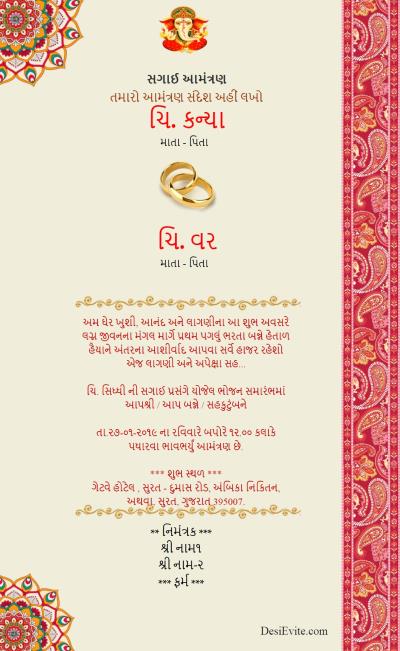 સગાઈ આમંત્રણ
તમારો આમંત્રણ સંદેશ અહીં લખો
ચિ. કન્યા
માતા - પિતા
ચિ. વર
માતા - પિતા
અમ ઘેર ખુશી, આનંદ અને લાગણીના આ શુભ અવસરે
લગ્ન જીવનના મંગલ માર્ગે પ્રથમ પગલું ભરતા બન્ને હેતાળ
હૈયાને અંતરના આશીર્વાદ આપવા સર્વે હાજર રહેશો
એજ લાગણી અને અપેક્ષા સહ...
ચિ. સિધ્ધી ની સગાઈ પ્રસંગે યોજેલ ભોજન સમારંભમાં
આપશ્રી / આપ બન્ને / સહકુટુંબને
તા.૨૭-૦૧-૨૦૧૯ ના રવિવારે બપોરે ૧૨.૦૦ કલાકે
પધારવા ભાવભર્યું આમંત્રણ છે.
*** શુભ સ્થળ ***
ગેટવે હોટેલ , સુરત - દુમાસ રોડ, અંબિકા નિકિતન,
અથવા, સુરત, ગુજરાત 395007.
** નિમંત્રક ***
શ્રી નામ૧
શ્રી નામ-૨
*** ફર્મ ***
DesiEvite.com